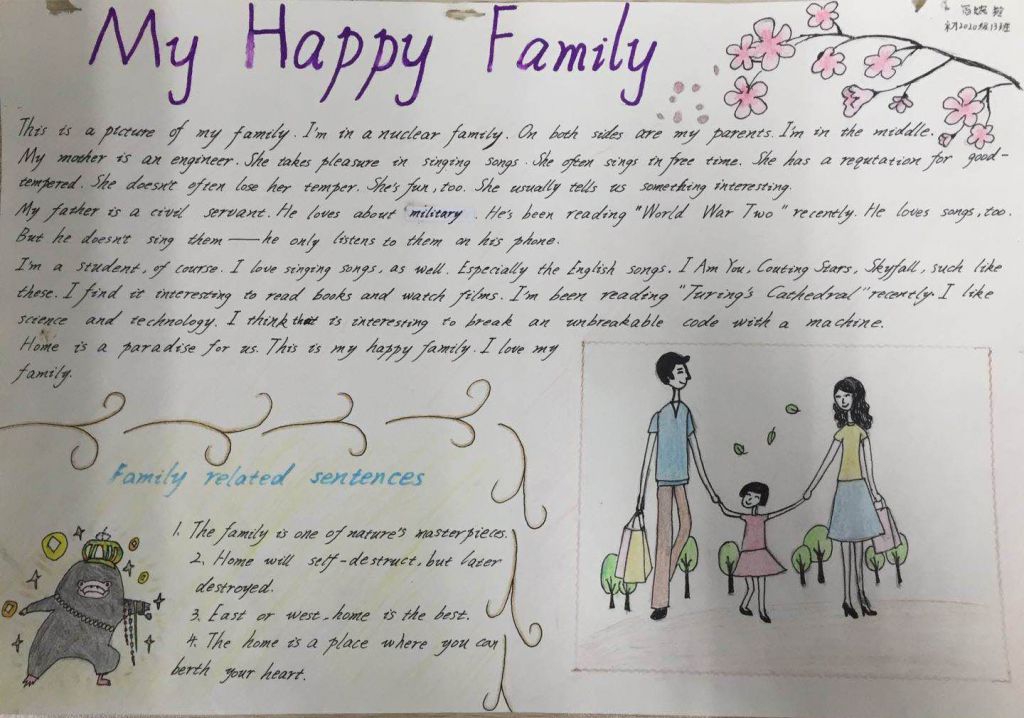 My Happy Family
米才2020级13班
This is a picture of my family. I'm in a nuclear family. On both sides are my parents. I'm in the middle.
My mother is an engineer. She takes pleasure in singing songs. She often sings in free time. She has a requtation for good-
tempered. She doesn't often lose her temper. She's fun, too. She usually tells us something interesting.
My father is a civil servant. He loves about military. He's been reading "World War Two" recently. He loves songs, too.
But he doesn't sing them——he only listens to them on his phone.
I'm a student, of course. I love singing songs, as well. Especially the English songs. I Am You, Couting Stars, Skyfall, such like
these. I find it interesting to read books and watch films. I'm been reading "Turing's Cathedral" recently. I like
science and technology. I think that is interesting to break an unbreakable code with a machine.
Home is a paradise for us. This is my happy family. I love my
family.
Family related sentences
1. The family is one of nature's masterpieces.
2. Home will self-destruct, but later
destroyed.
3. East or west. home is the best.
4. The home is a place where you can
berth your heart.